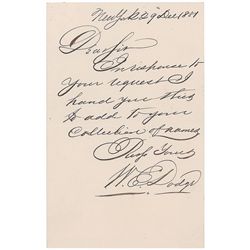 New York 29 Dec 1881
Dear Sir
In response to
your request I
hand you this
to add to your
Collection of names
Resp Yours
W. E. Dodge